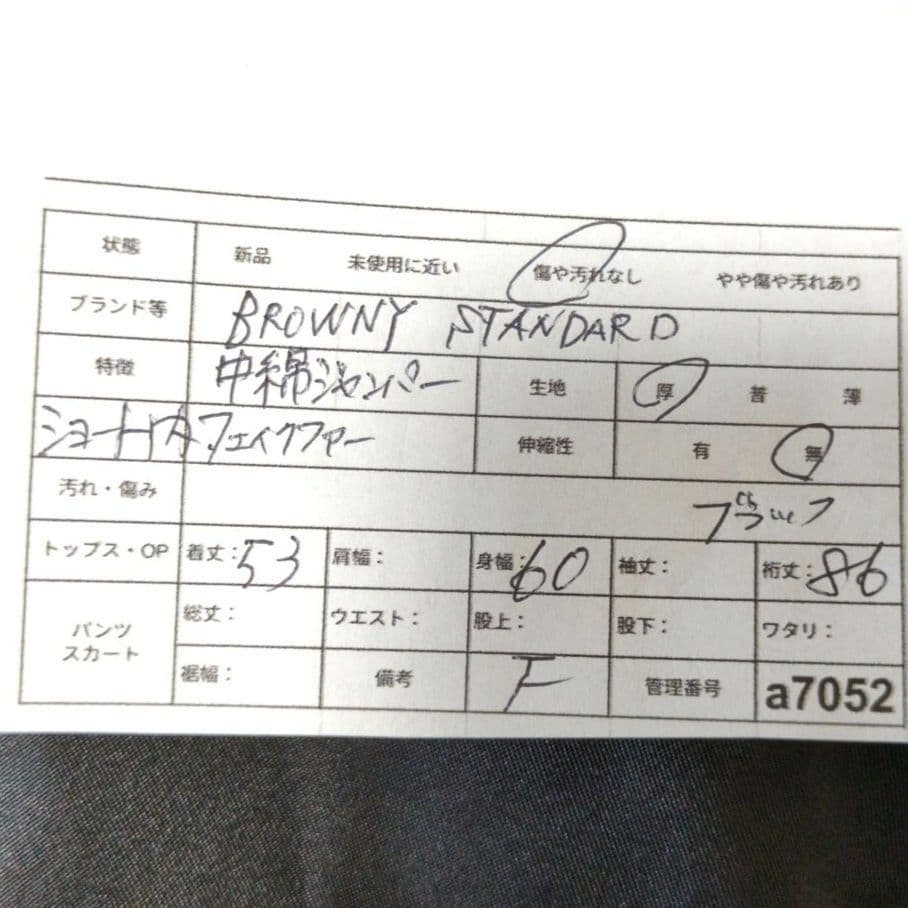 状態 新品 未使用に近い 傷や汚れなし やや傷や汚れあり
ブランド等 BROWNY STANDARD
特徴 中綿ジャンパー 生地 厚 普 薄
ショート丈 フェイクファー 伸縮性 有 無
汚れ・傷み ブラック
トップス・OP 着丈:53 肩幅: 身幅:60 袖丈: 裄丈:86
パンツ スカート 総丈: ウエスト: 股上: 股下: ワタリ:
裾幅: 備考 F 管理番号 a7052